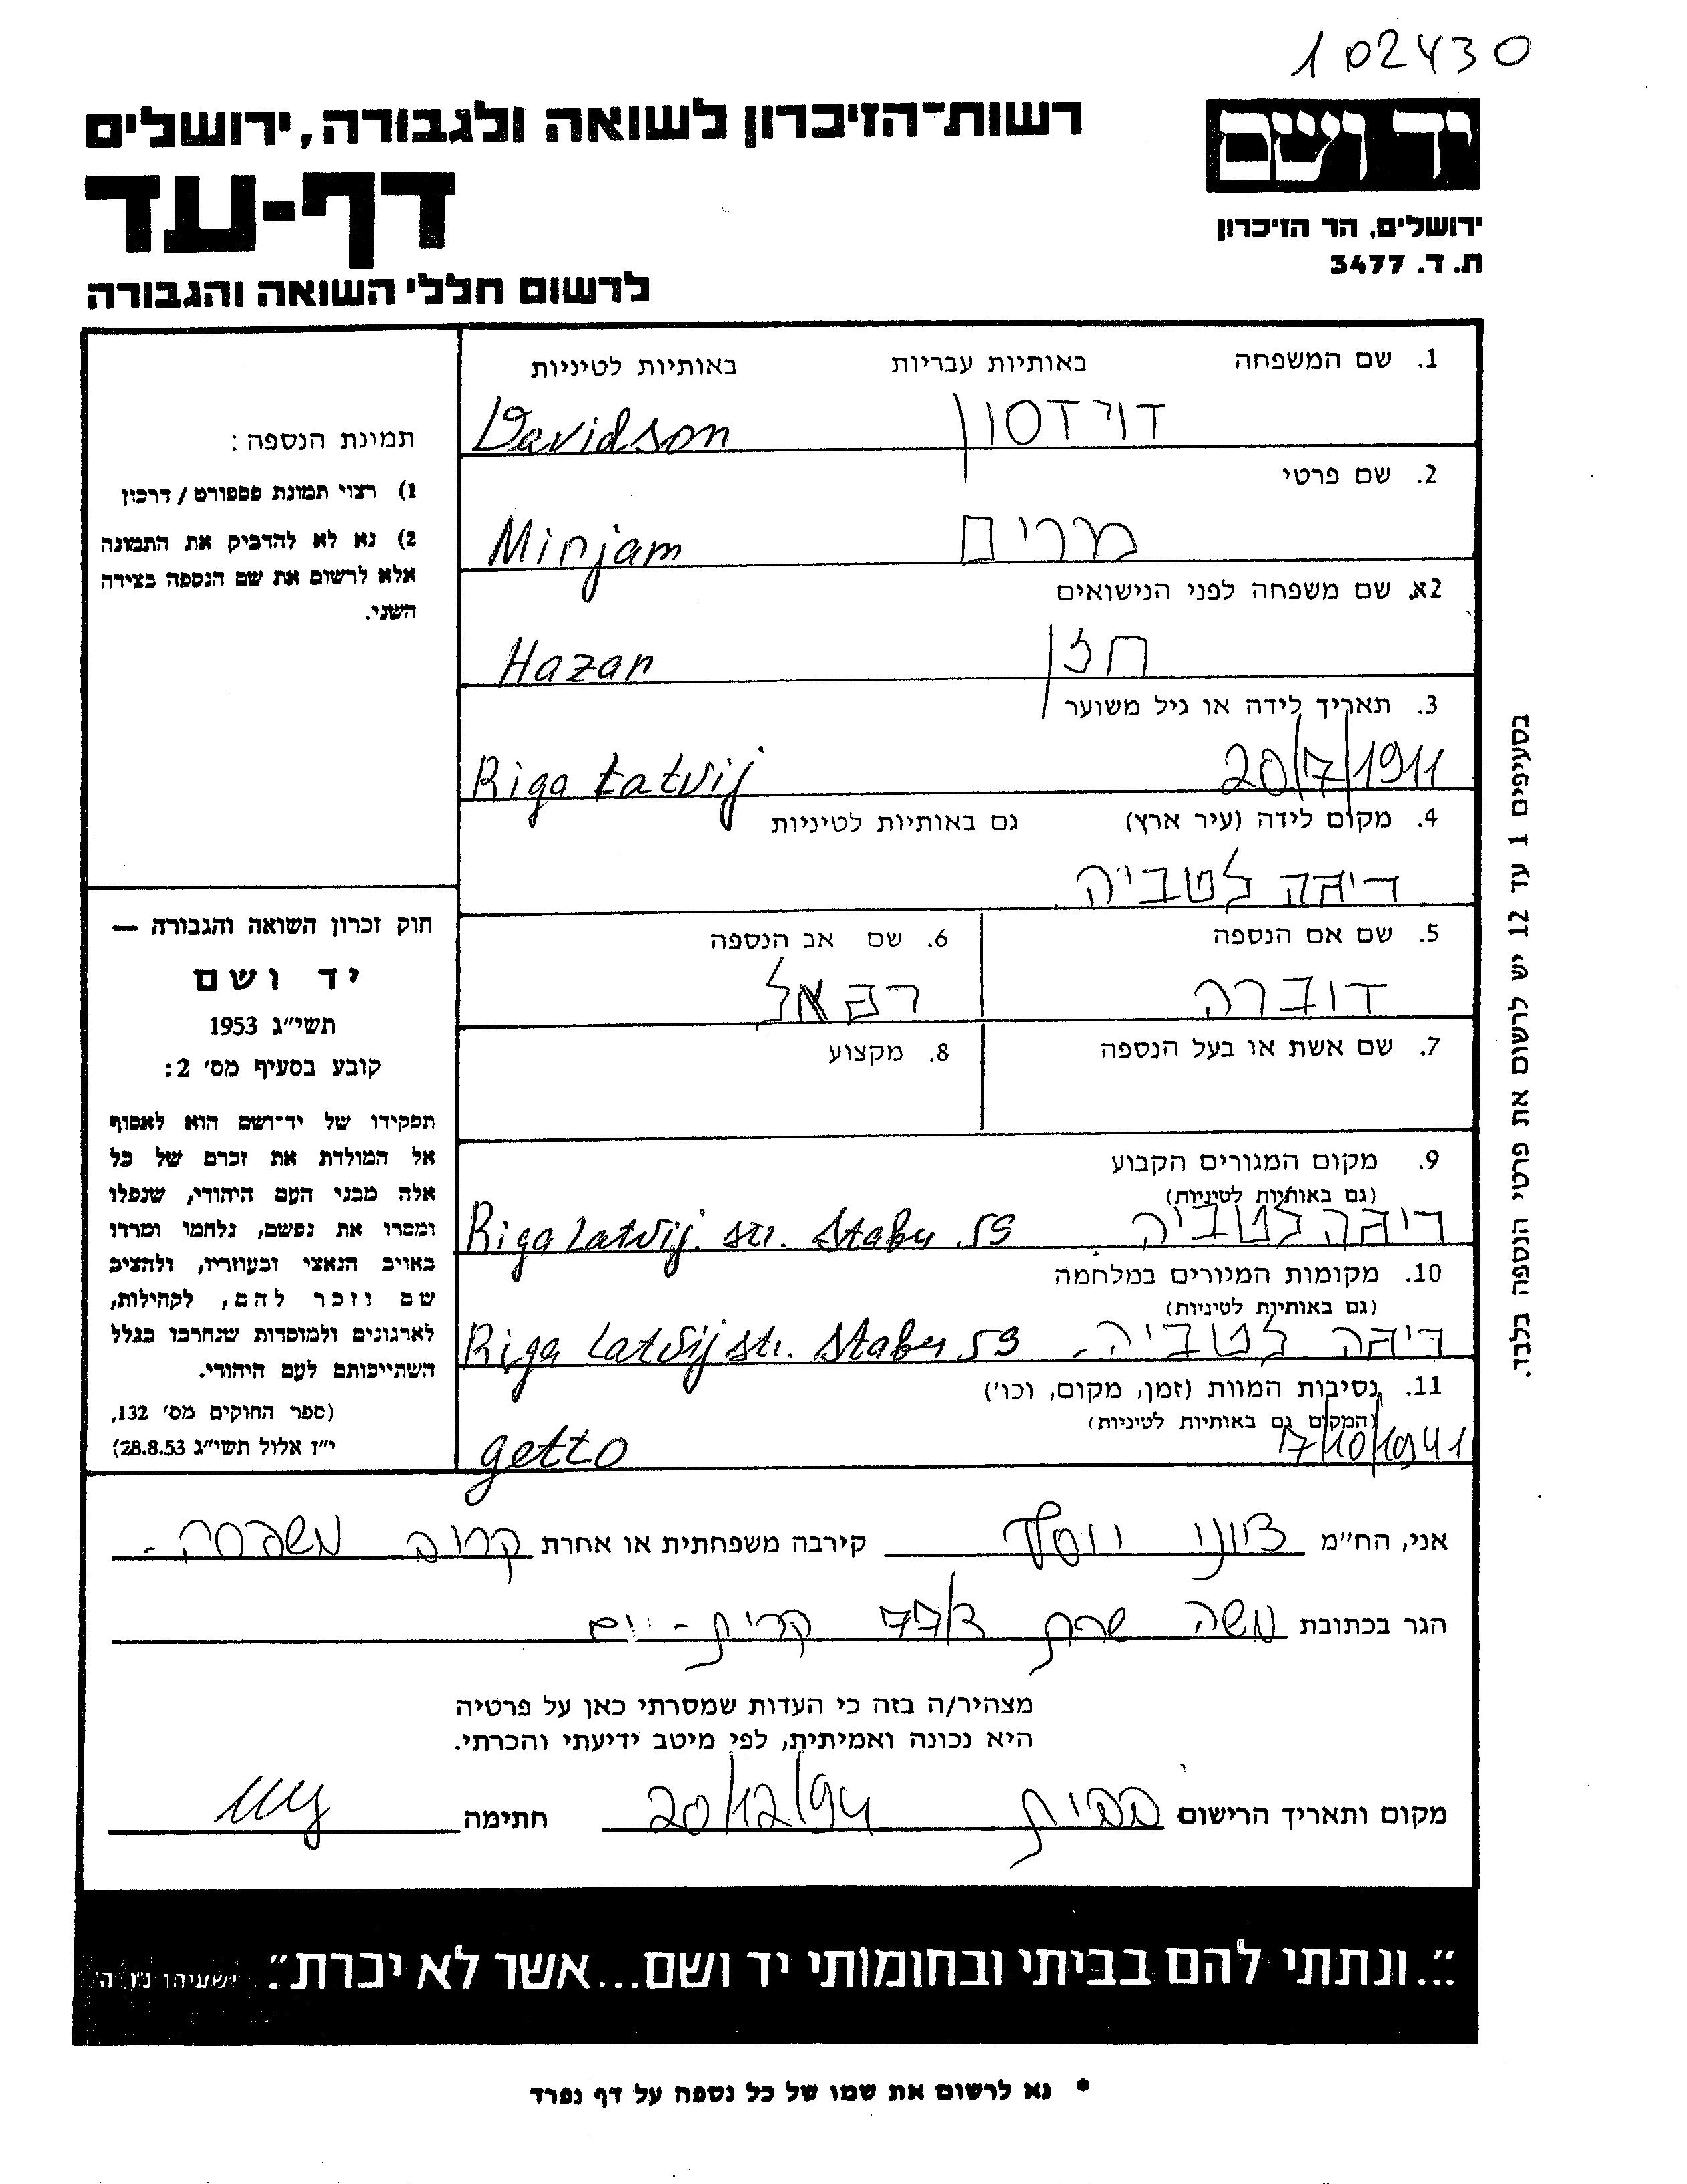 102430
יד ושם
רשות־הזיכרון לשואה ולגבורה, ירושלים
דף-עד
ירושלים, הר הזיכרון
ת. ד. 3477
לרשום חללי השואה והגבורה
1. שם המשפחה באותיות עבריות באותיות לטיניות
דוידסון Davidson
2. שם פרטי
מרים Mirjam
2א. שם משפחה לפני הנישואים
חזן Hazan
3. תאריך לידה או גיל משוער
20/7/1911 Riga Latvij
4. מקום לידה (עיר ארץ) גם באותיות לטיניות
ריגה לטביה.
5. שם אם הנספה 6. שם אב הנספה
דוברה רפאל
7. שם אשת או בעל הנספה 8. מקצוע
9. מקום המגורים הקבוע
(גם באותיות לטיניות)
ריגה לטביה. Riga Latvij. str. Stabu 59
10. מקומות המגורים במלחמה
(גם באותיות לטיניות)
ריגה לטביה. Riga Latvij str. Stabu 59
11. נסיבות המוות (זמן, מקום, וכו')
(המקום גם באותיות לטיניות)
17/10/1941 getto
תמונת הנספה:
1) רצוי תמונת פספורט / דרכון
2) נא לא להדביק את התמונה
אלא לרשום את שם הנספה בצידה
השני.
חוק זכרון השואה והגבורה —
יד ושם
תשי״ג 1953
קובע בסעיף מס׳ 2:
תפקידו של יד־ושם הוא לאסוף
אל המולדת את זכרם של כל
אלה מבני העם היהודי, שנפלו
ומסרו את נפשם, נלחמו ומרדו
באויב הנאצי ובעוזריו, ולהציב
שם וזכר להם, לקהילות,
לארגונים ולמוסדות שנחרבו בגלל
השתייכותם לעם היהודי.
(ספר החוקים מס׳ 132,
י״ז אלול תשי״ג 28.8.53)
בסעיפים 1 עד 12 יש לרשום את פרטי הנספה בלבד.
אני, הח״מ קירבה משפחתית או אחרת קרוב משפחה.
הגר בכתובת משה שרת קרית-ים
מצהיר/ה בזה כי העדות שמסרתי כאן על פרטיה
היא נכונה ואמיתית, לפי מיטב ידיעתי והכרתי.
מקום ותאריך הרישום 20/12/94 חתימה
״...ונתתי להם בביתי ובחומותי יד ושם...אשר לא יכרת״. ישעיהו נ״ו, ה׳
* נא לרשום את שמו של כל נספה על דף נפרד